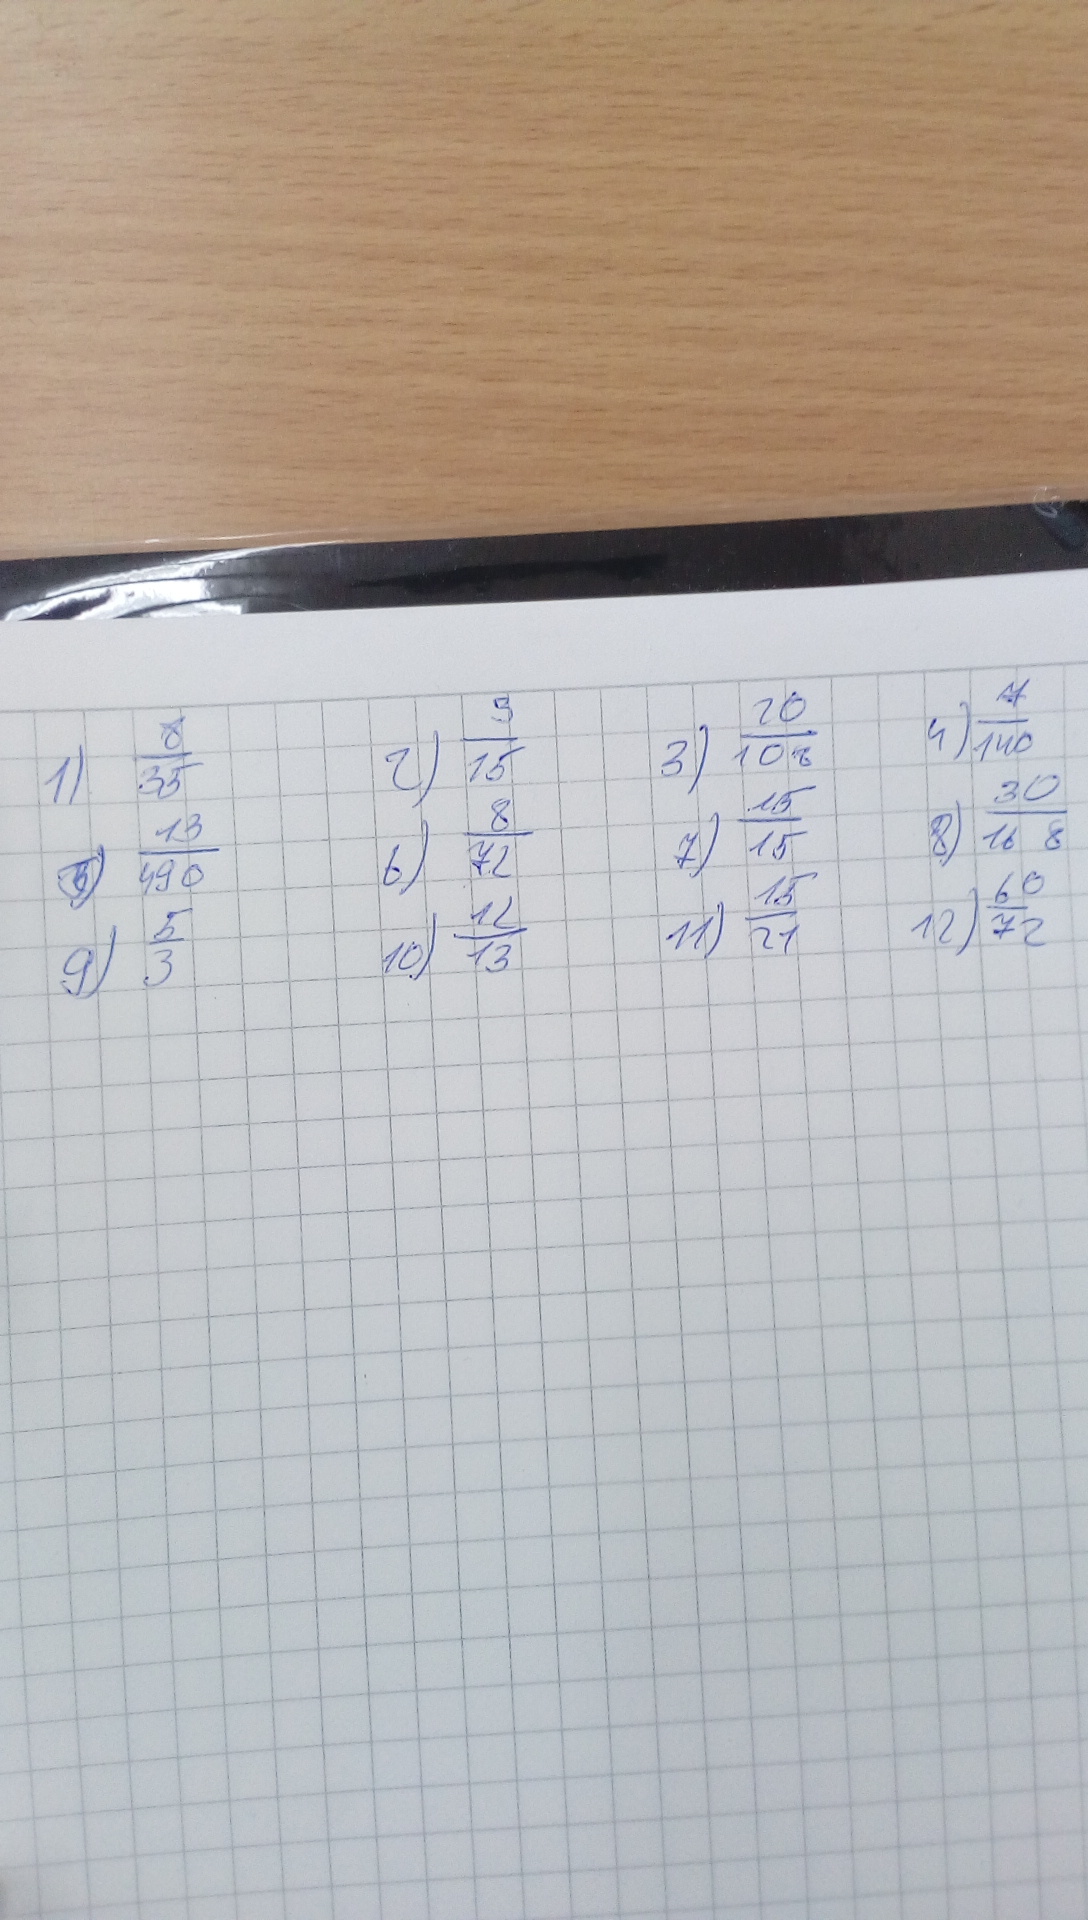 1) 8/35 2) 3/15 3) 20/108 4) 7/140
5) 13/490 6) 8/72 7) 15/15 8) 30/168
9) 5/3 10) 12/13 11) 15/21 12) 60/72